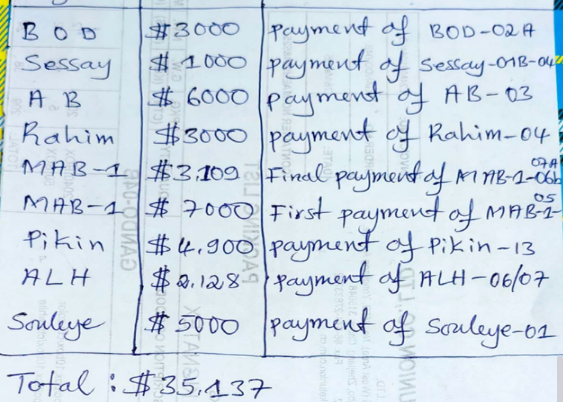 BOD $3000 payment of BOD-02A
Sessay $1000 payment of Sessay-01B-04
AB $6000 payment of AB-03
Rahim $3000 payment of Rahim-04
MAB-1 $3.109 Final payment of MAB-1-06b 07A
MAB-1 $7000 First payment of MAB-1-05
Pikin $4.900 payment of Pikin-13
ALH $2.128 payment of ALH-06/07
Souleye $5000 payment of Souleye-01
Total : $35.137